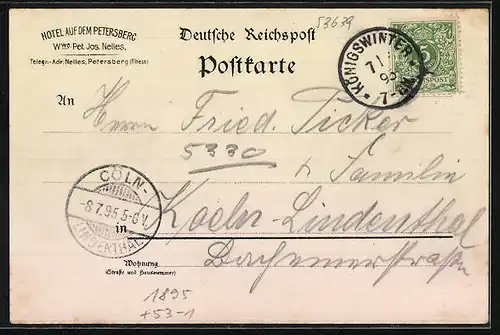 HOTEL AUF DEM PETERSBERG
Wwe Pet. Jos. Nelles.
Telegr.-Adr. Nelles, Petersberg (Rhein)
53639
Deutsche Reichspost
Postkarte
KÖNIGSWINTER
7-8N
5
An
Herrn Fried. Ticker
5330
u Familie
CÖLN-
-8.7.95.5-6V.
LINDENTHAL
in
Koeln-Lindenthal
Bachemerstraße
Wohnung
(Straße und Hausnummer)
1895
+53-1